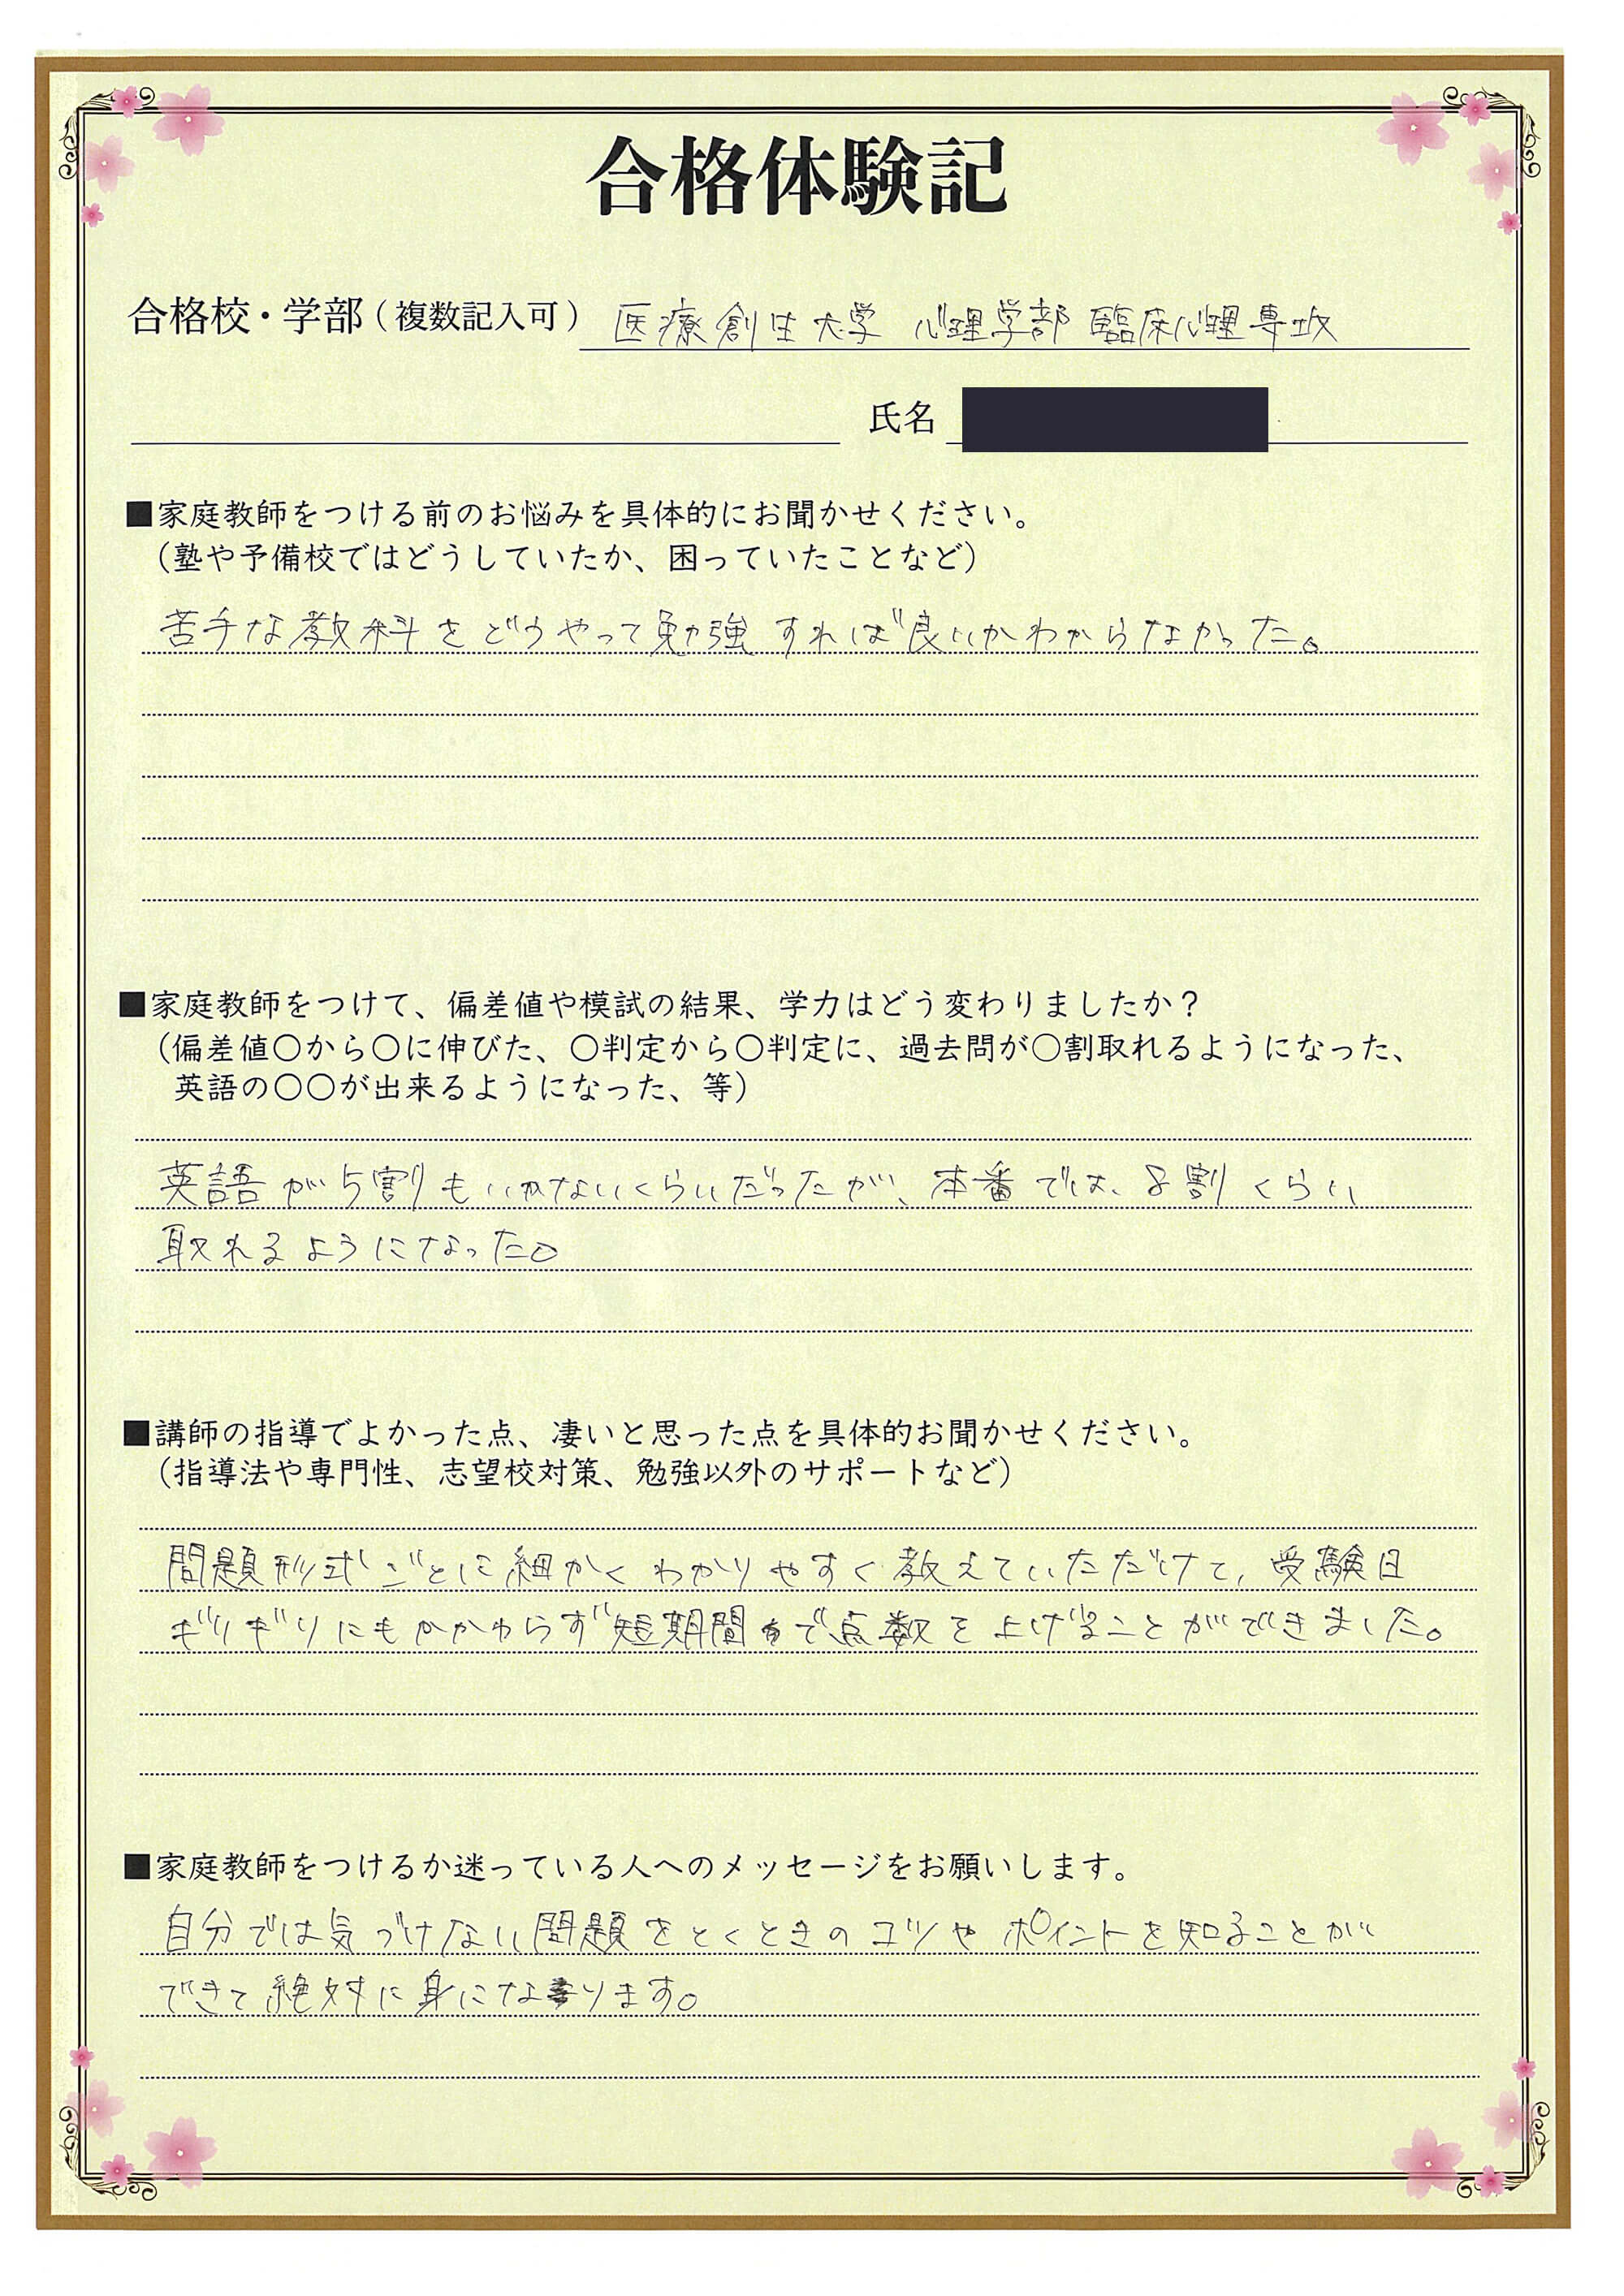 合格体験記
合格校・学部（複数記入可） 医療創生大学 心理学部 臨床心理専攻
氏名
■家庭教師をつける前のお悩みを具体的にお聞かせください。
（塾や予備校ではどうしていたか、困っていたことなど）
苦手な教科をどうやって勉強すれば良いかわからなかった。
■家庭教師をつけて、偏差値や模試の結果、学力はどう変わりましたか？
（偏差値〇から〇に伸びた、〇判定から〇判定に、過去問が〇割取れるようになった、
英語の〇〇が出来るようになった、等）
英語が5割もいかないくらいだったが、本番では、8割くらい
取れるようになった。
■講師の指導でよかった点、凄いと思った点を具体的お聞かせください。
（指導法や専門性、志望校対策、勉強以外のサポートなど）
問題形式ごとに細かくわかりやすく教えていただけて、受験日
ギリギリにもかかわらず短期間で点数を上げることができました。
■家庭教師をつけるか迷っている人へのメッセージをお願いします。
自分では気づけない問題をとくときのコツやポイントを知ることが
できて絶対に身になります。